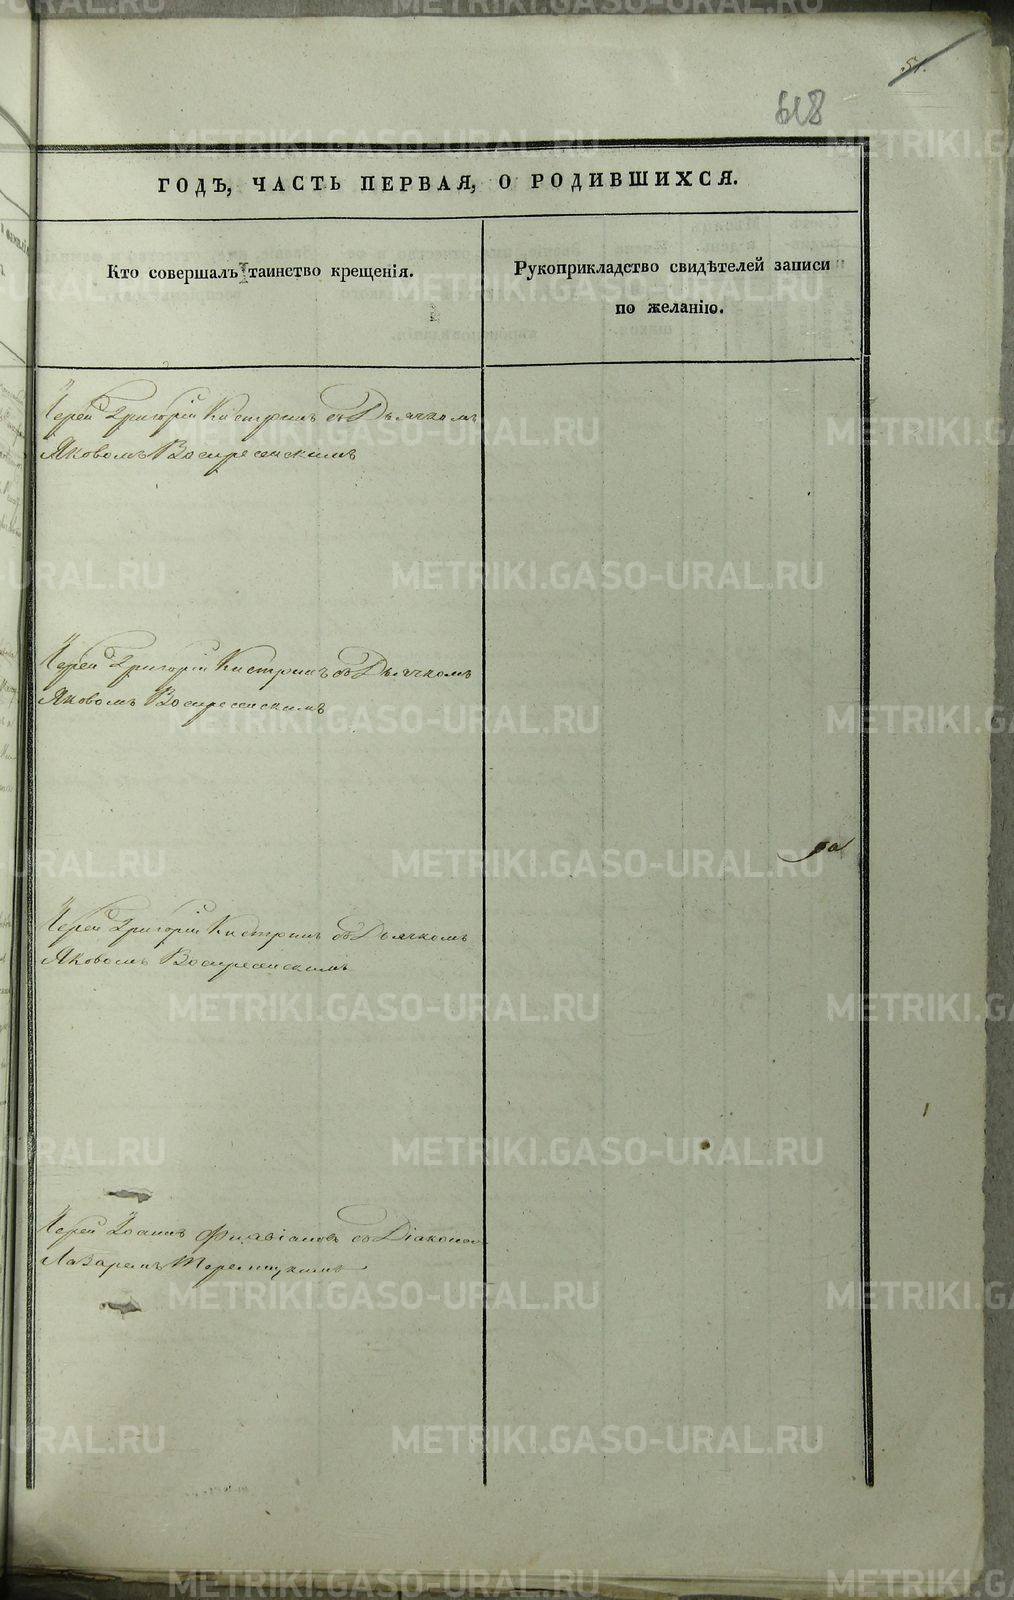 51.
618
ГОДЪ, ЧАСТЬ ПЕРВАЯ, О РОДИВШИХСЯ.
Кто совершалъ таинство крещенія.
Рукоприкладство свидѣтелей записи
по желанію.
Іерей Григорій Кистринъ съ Дьячкомъ
Яковомъ Воскресенскимъ
Іерей Григорій Кистринъ съ Дьячкомъ
Яковомъ Воскресенскимъ
ра
Іерей Григорій Кистринъ съ Дьячкомъ
Яковомъ Воскресенскимъ
Іерей Іоаннъ Флавіановъ съ Діакономъ
Лазаремъ
METRIKI.GASO-URAL.RU